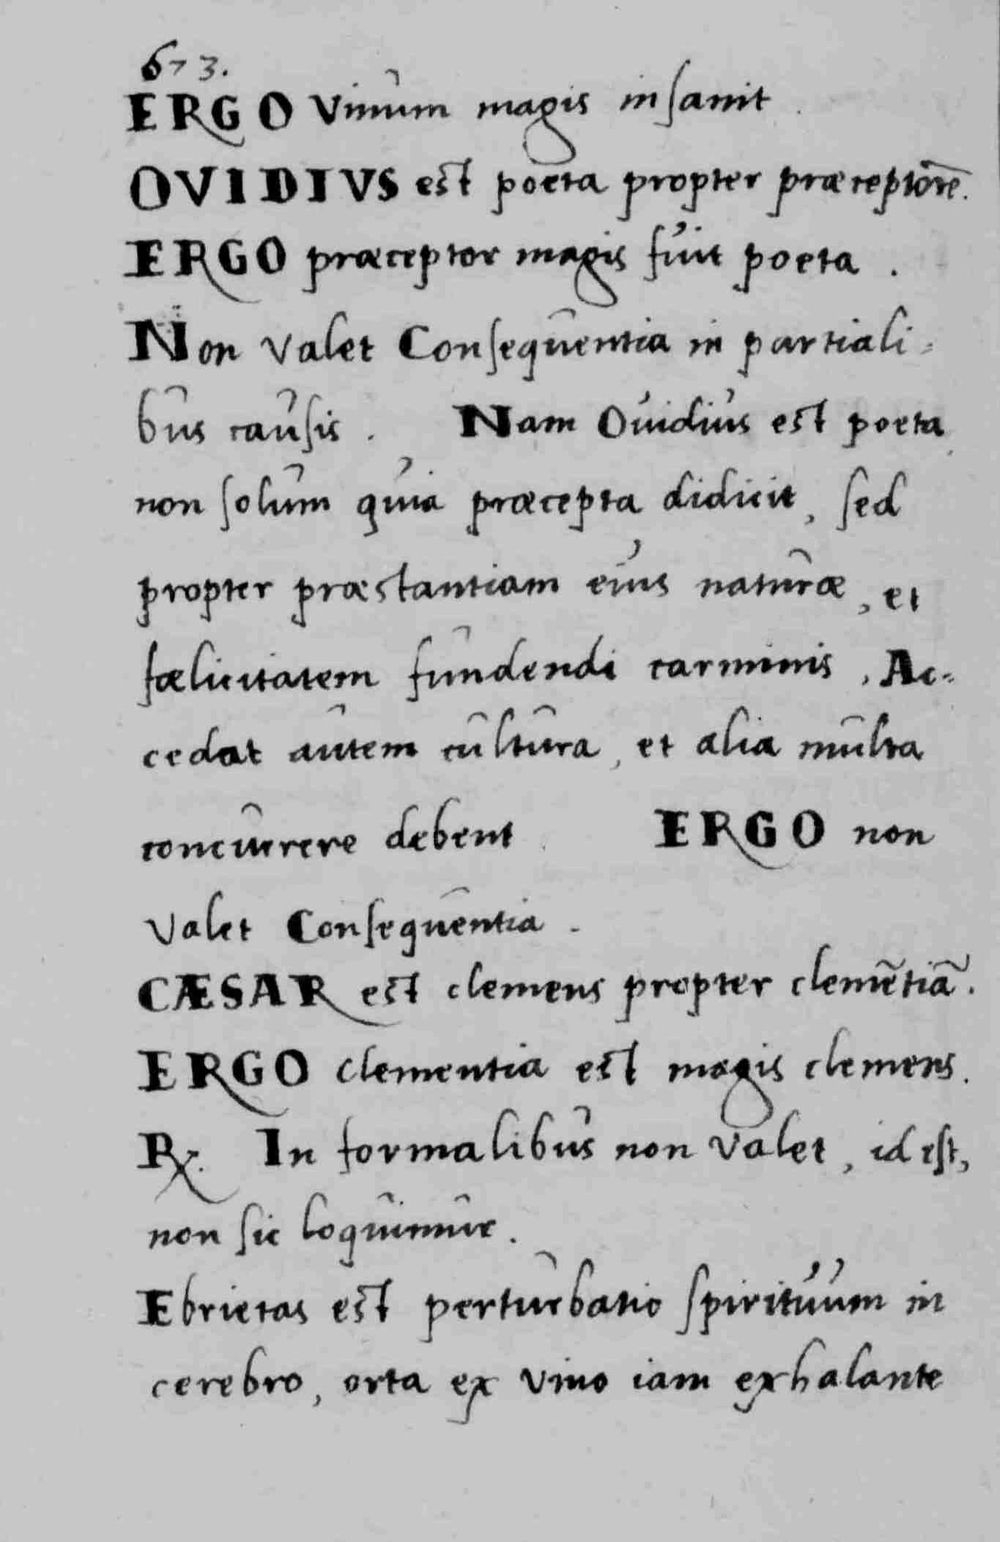 673.
ERGO Vinum magis insanit
OVIDIVS est poeta propter præceptorē.
ERGO præceptor magis fuit poeta .
Non valet Consequentia in partiali-
bus causis . Nam Ouidius est poeta
non solum quia præcepta didicit, sed
propter præstantiam eius naturæ, et
fœlicitatem fundendi carminis, Ac-
cedat autem cultura, et alia multa
concurrere debent . ERGO non
valet Consequentia .
CÆSAR est clemens propter clemētiā.
ERGO clementia est magis clemens.
R̸. In formalibus non valet, id est,
non sic loquimur.
Ebrietas est perturbatio spirituum in
cerebro, orta ex vino iam exhalante